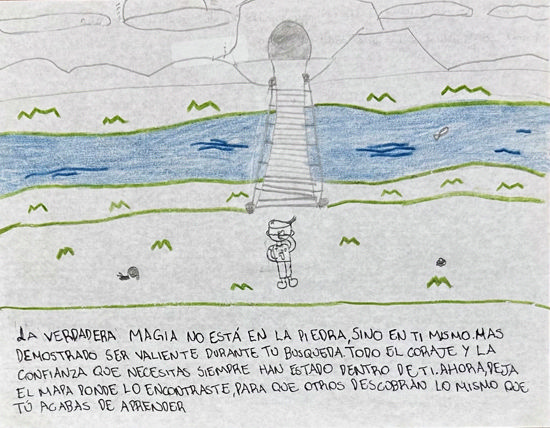 LA VERDADERA MAGIA NO ESTÁ EN LA PIEDRA, SINO EN TI MISMO. MAS
DEMOSTRADO SER VALIENTE DURANTE TU BUSQUEDA. TODO EL CORAJE Y LA
CONFIANZA QUE NECESITAS SIEMPRE HAN ESTADO DENTRO DE TI. AHORA, DEJA
EL MAPA DONDE LO ENCONTRASTE, PARA QUE OTROS DESCUBRÁN LO MISMO QUE
TÚ ACABAS DE APRENDER